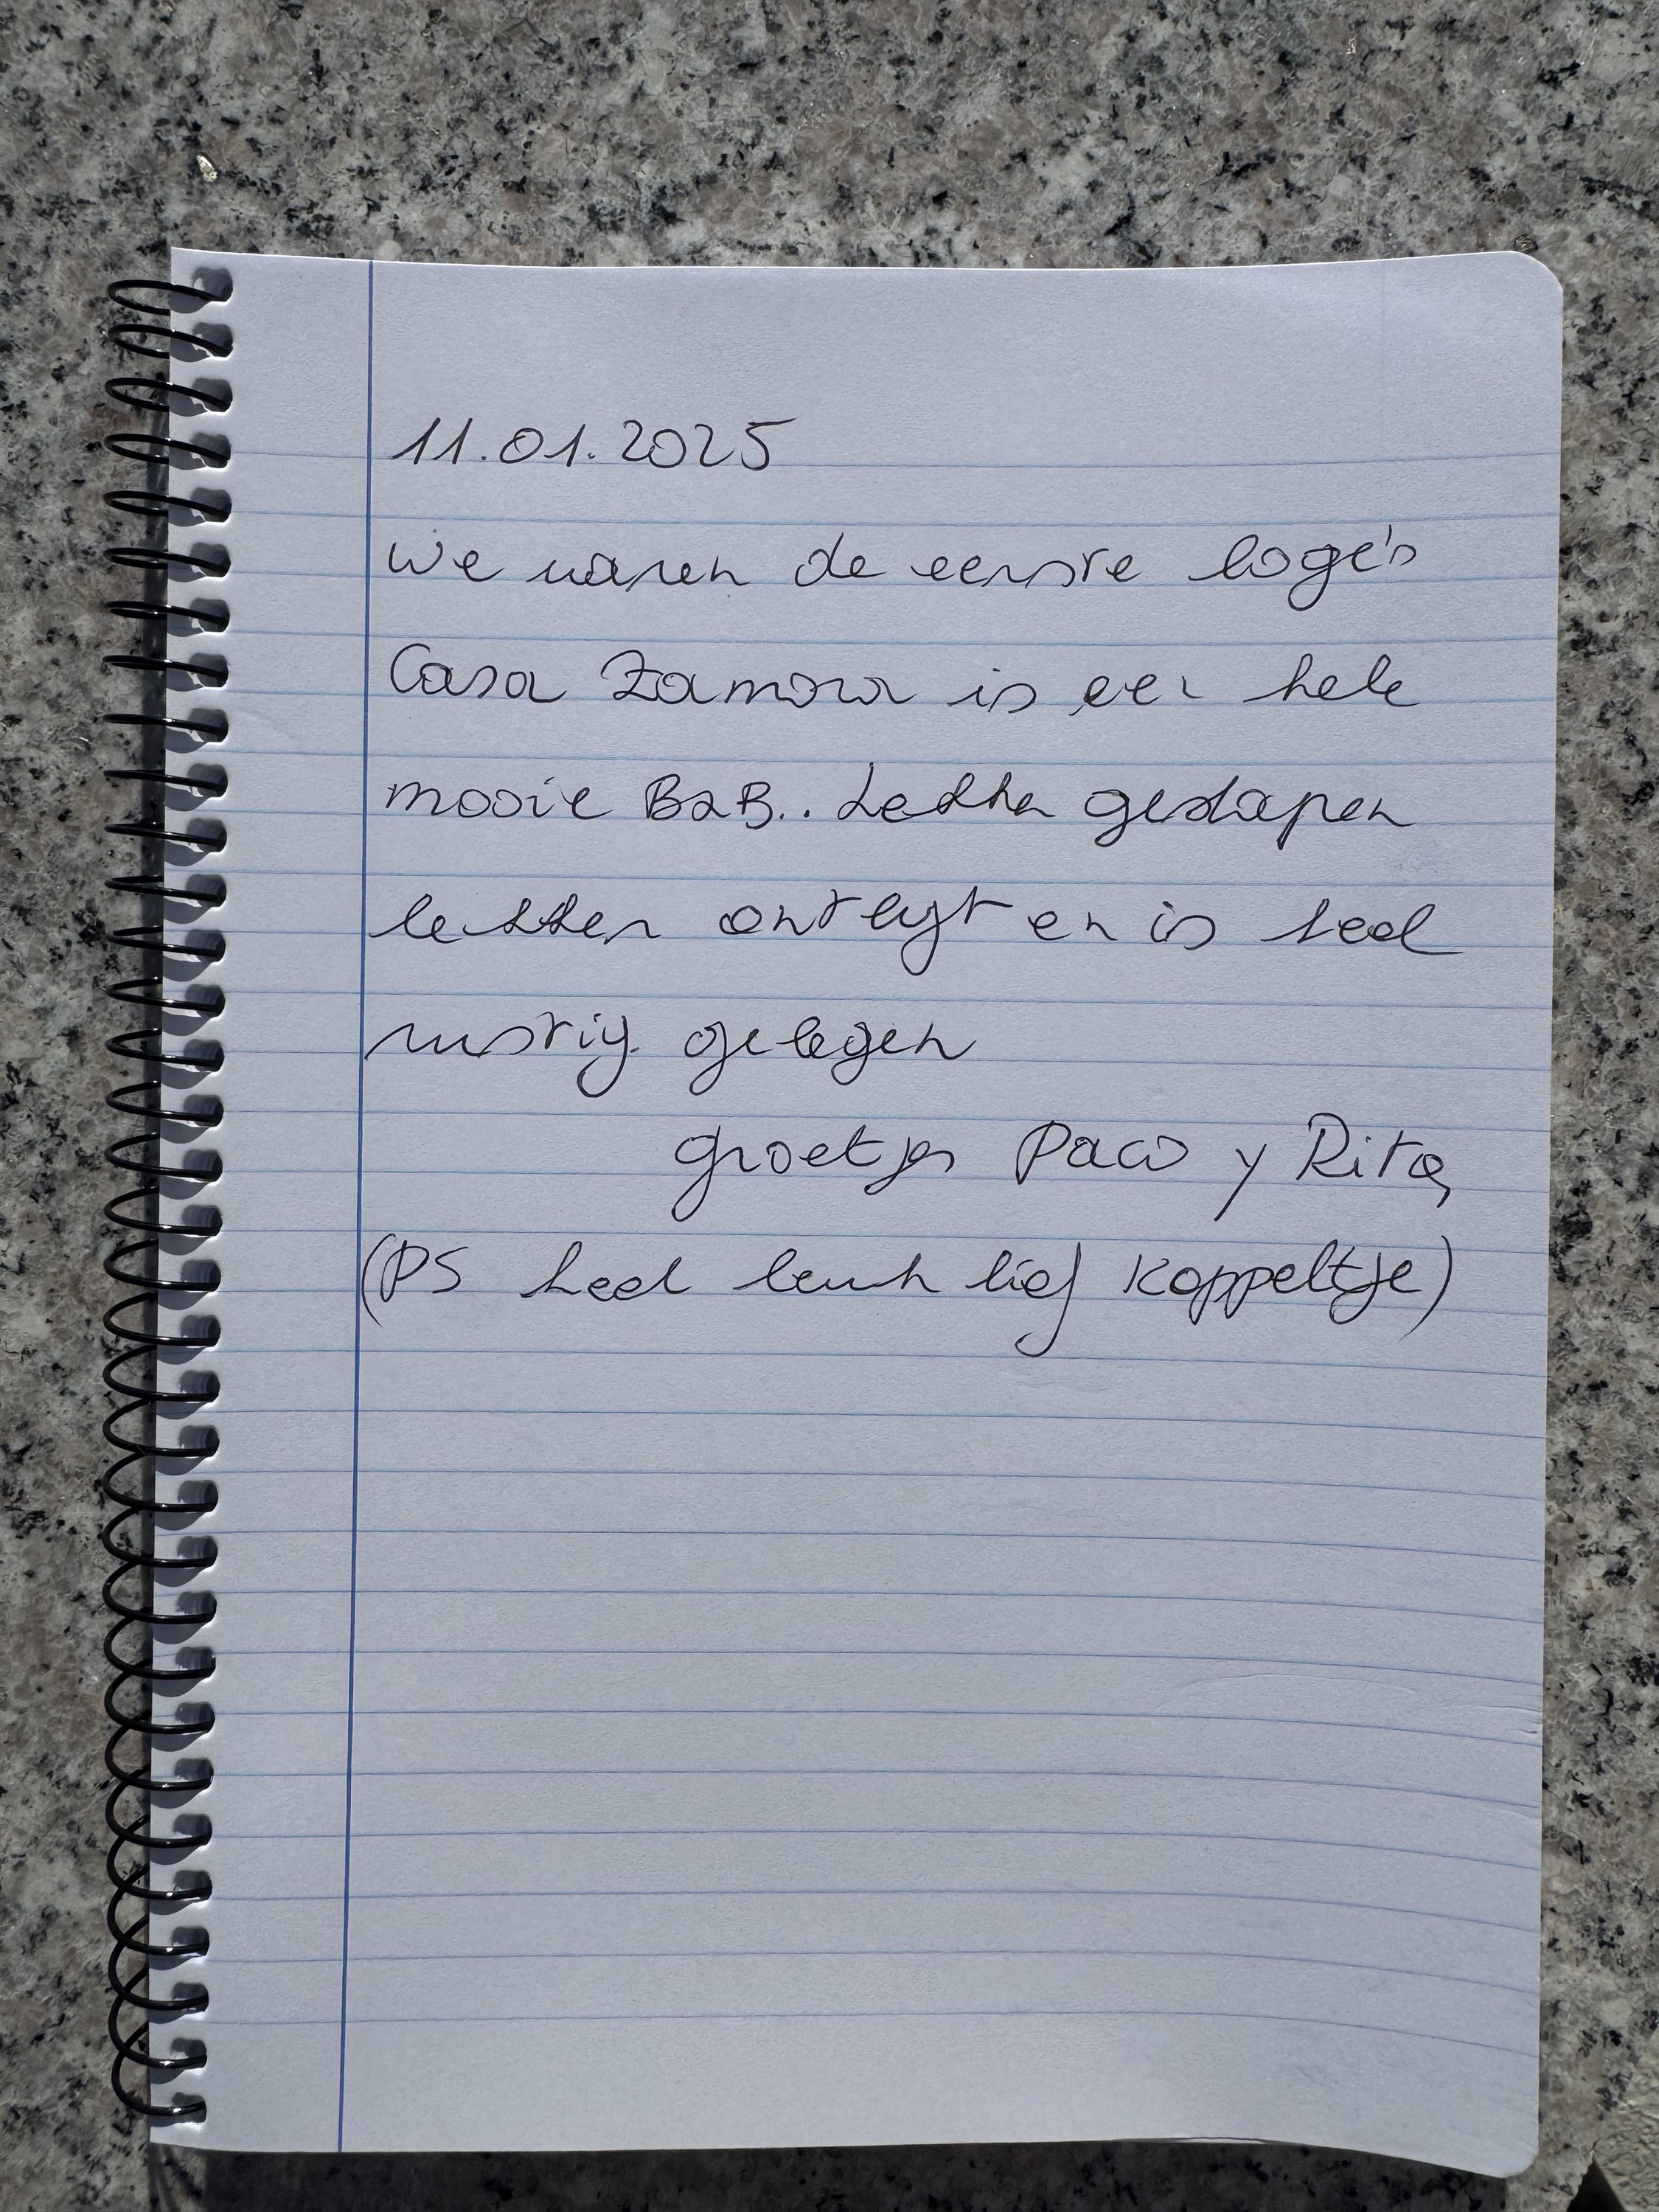 11.01.2025
We waren de eerste logé's
Casa Zamora is een hele
mooie B&B.. Lekker geslapen
lekker ontbijt en is heel
rustig gelegen
groetjes Paco y Rita
(PS heel leuk lief koppeltje)